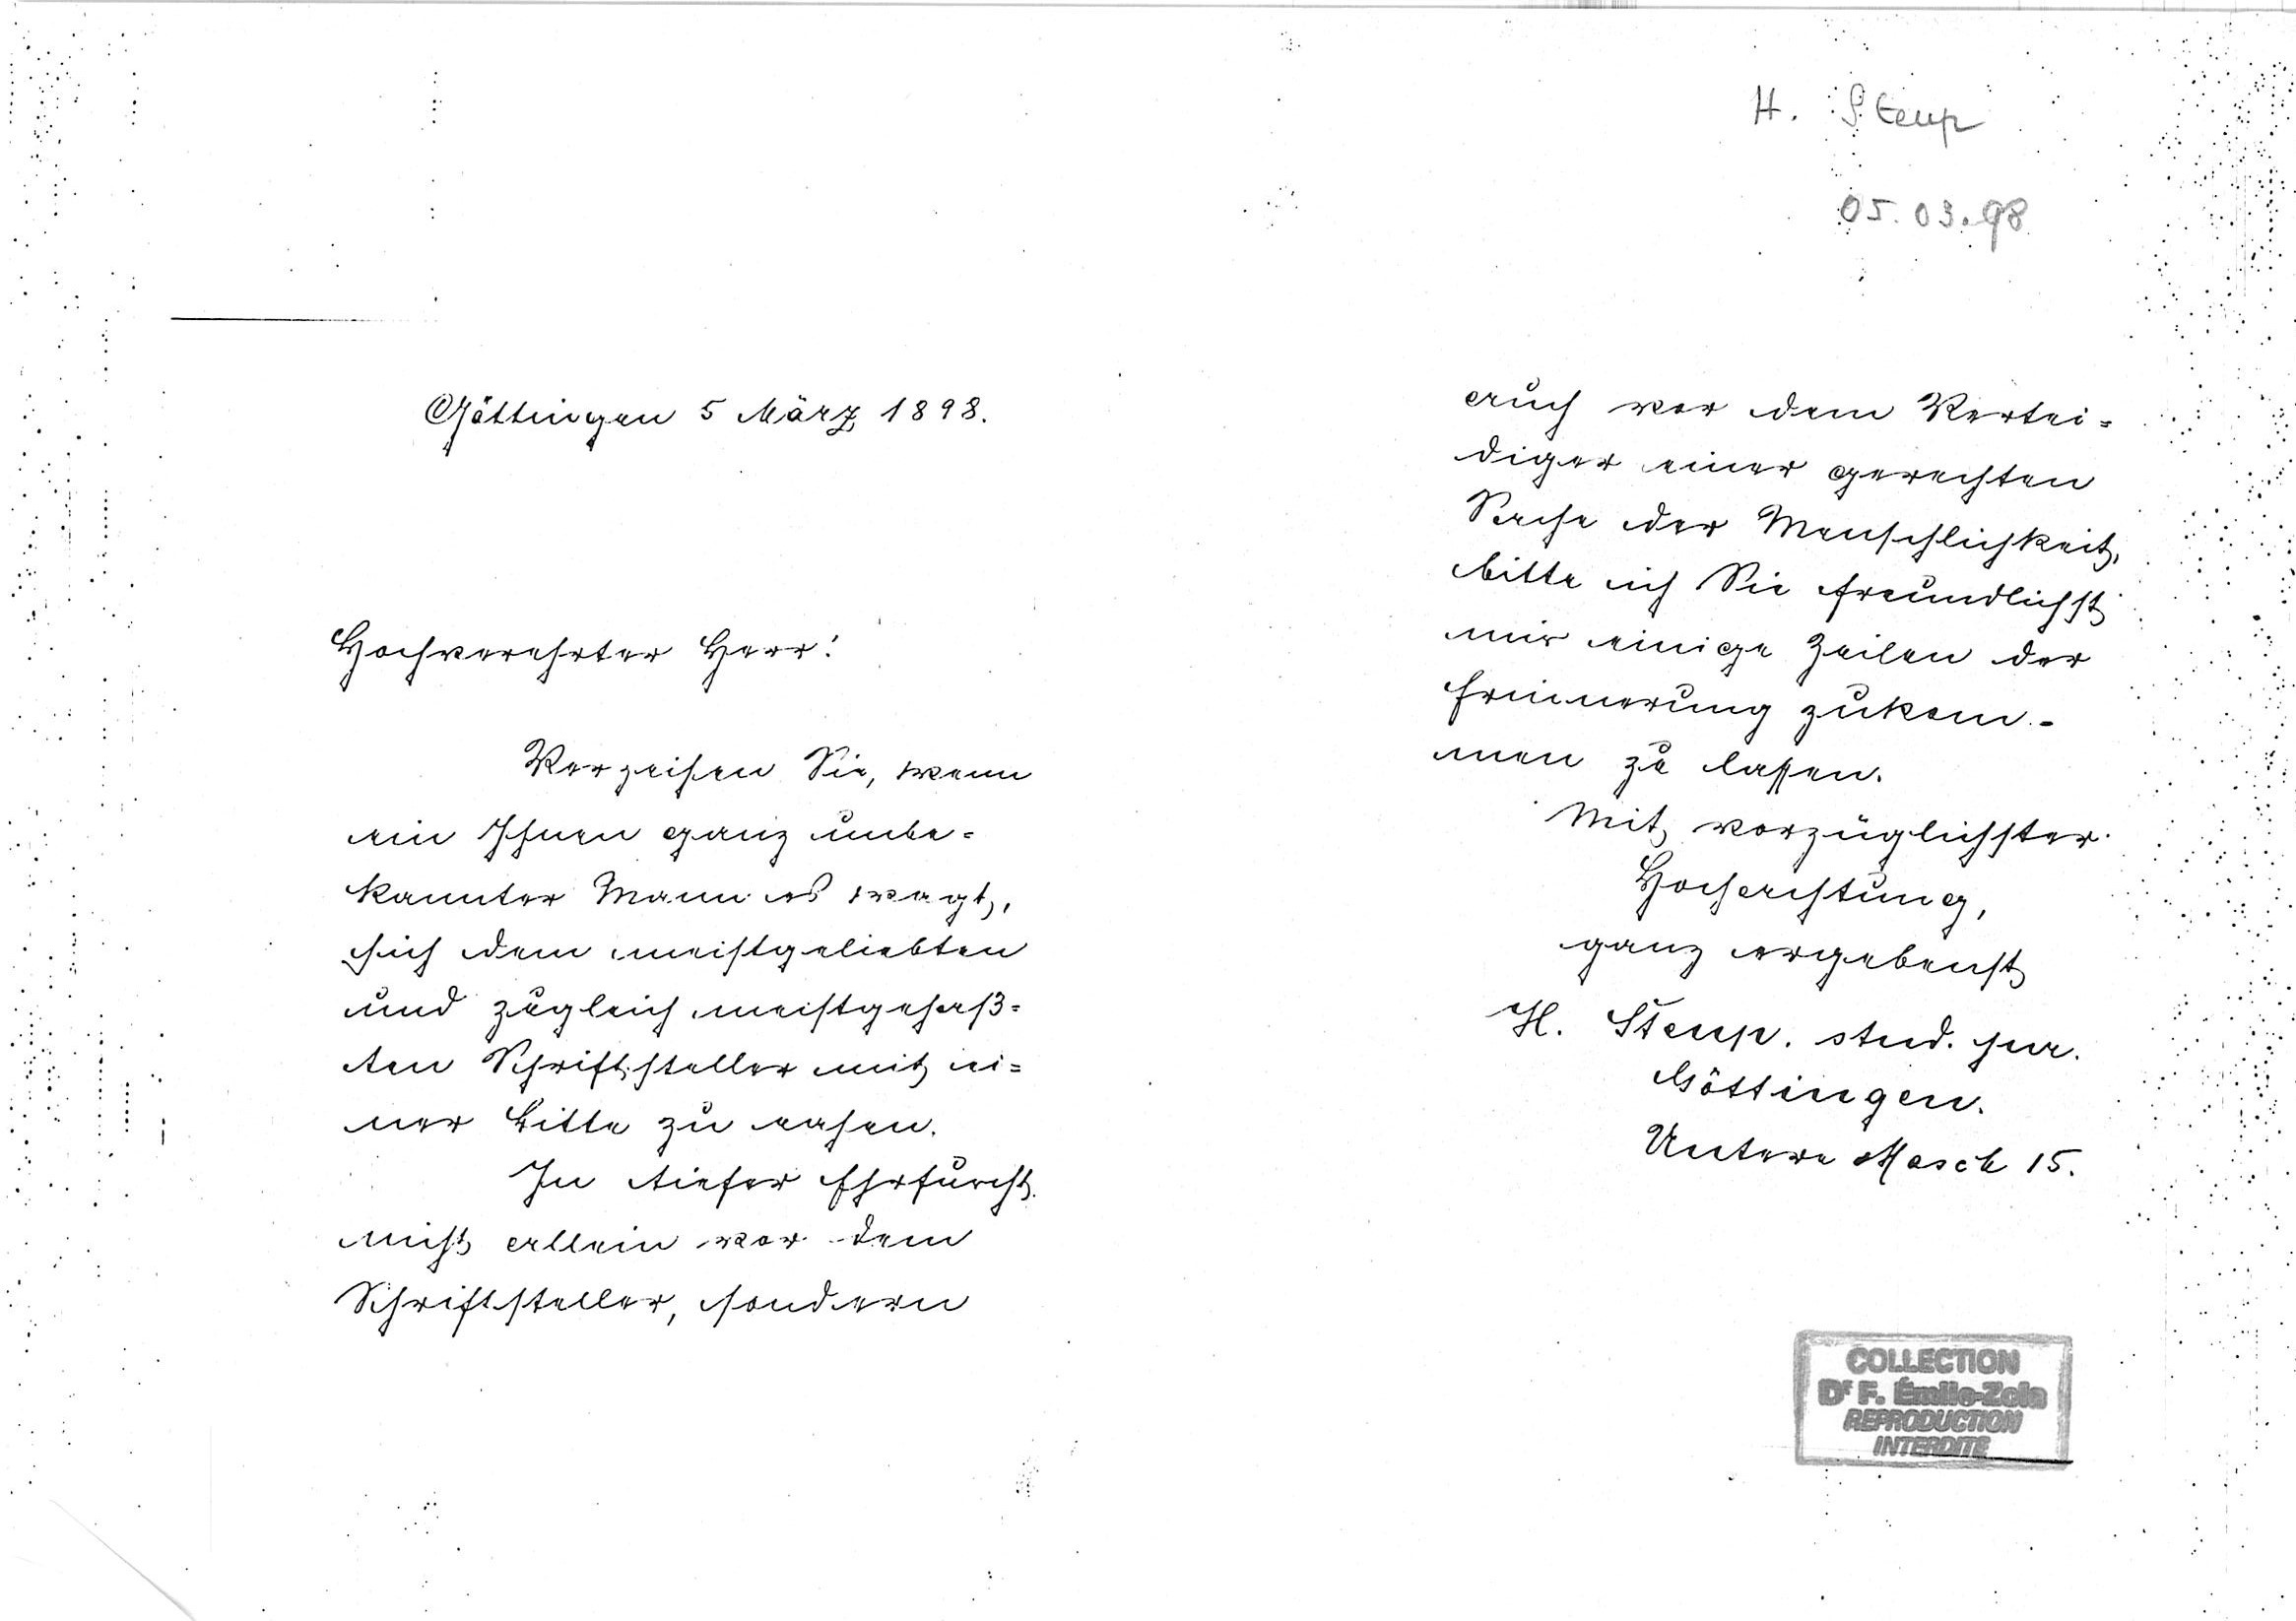 Göttingen 5 März 1898.
Hochverehrter Herr!
Verzeihen Sie, wenn
ein Ihnen ganz unbe-
kannter Mann es wagt,
sich dem meistgeliebten
und zugleich meistgehaß-
ten Schriftsteller mit ei-
ner Bitte zu nahen.
In tiefer Ehrfurcht
nicht allein vor dem
Schriftsteller, sondern
H. Steup
05.03.98
auch vor dem Vertei-
diger einer gerechten
Sache der Menschlichkeit,
bitte ich Sie freundlichst
mir einige Zeilen der
Erinnerung zukom-
men zu lassen.
Mit vorzüglichster
Hochachtung,
ganz ergebenst
H. Steup. stud. jur.
Göttingen.
Untere Masch 15.
COLLECTION
Dr F. Émile-Zola
REPRODUCTION
INTERDITE